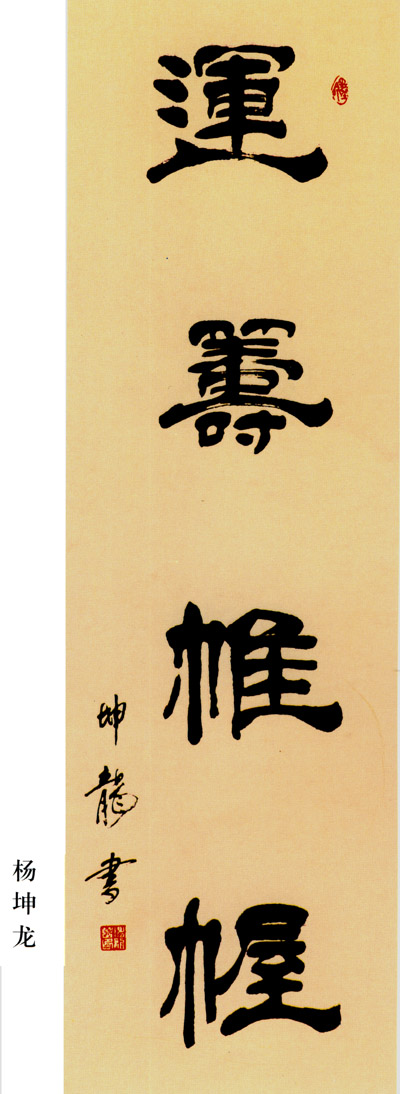 運籌帷幄
坤龍書
杨坤龙